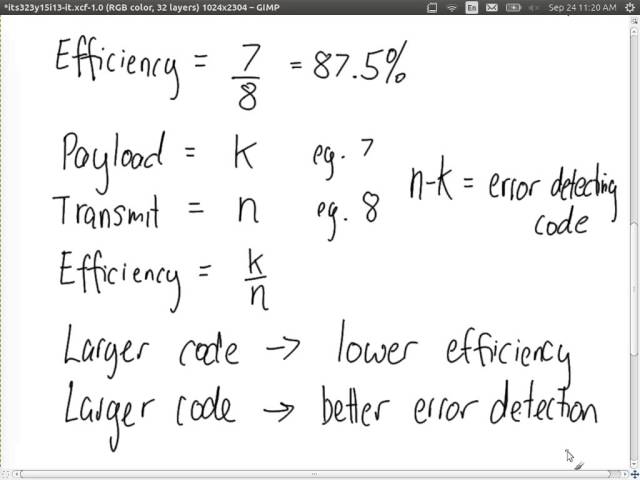 *its323y15i13-it.xcf-1.0 (RGB color, 32 layers) 1024x2304 – GIMP En Sep 24 11:20 AM
Efficiency = 7/8 = 87.5%
Payload = k eg. 7
n-k = error detecting code
Transmit = n eg. 8
Efficiency = k/n
Larger code → lower efficiency
Larger code → better error detection